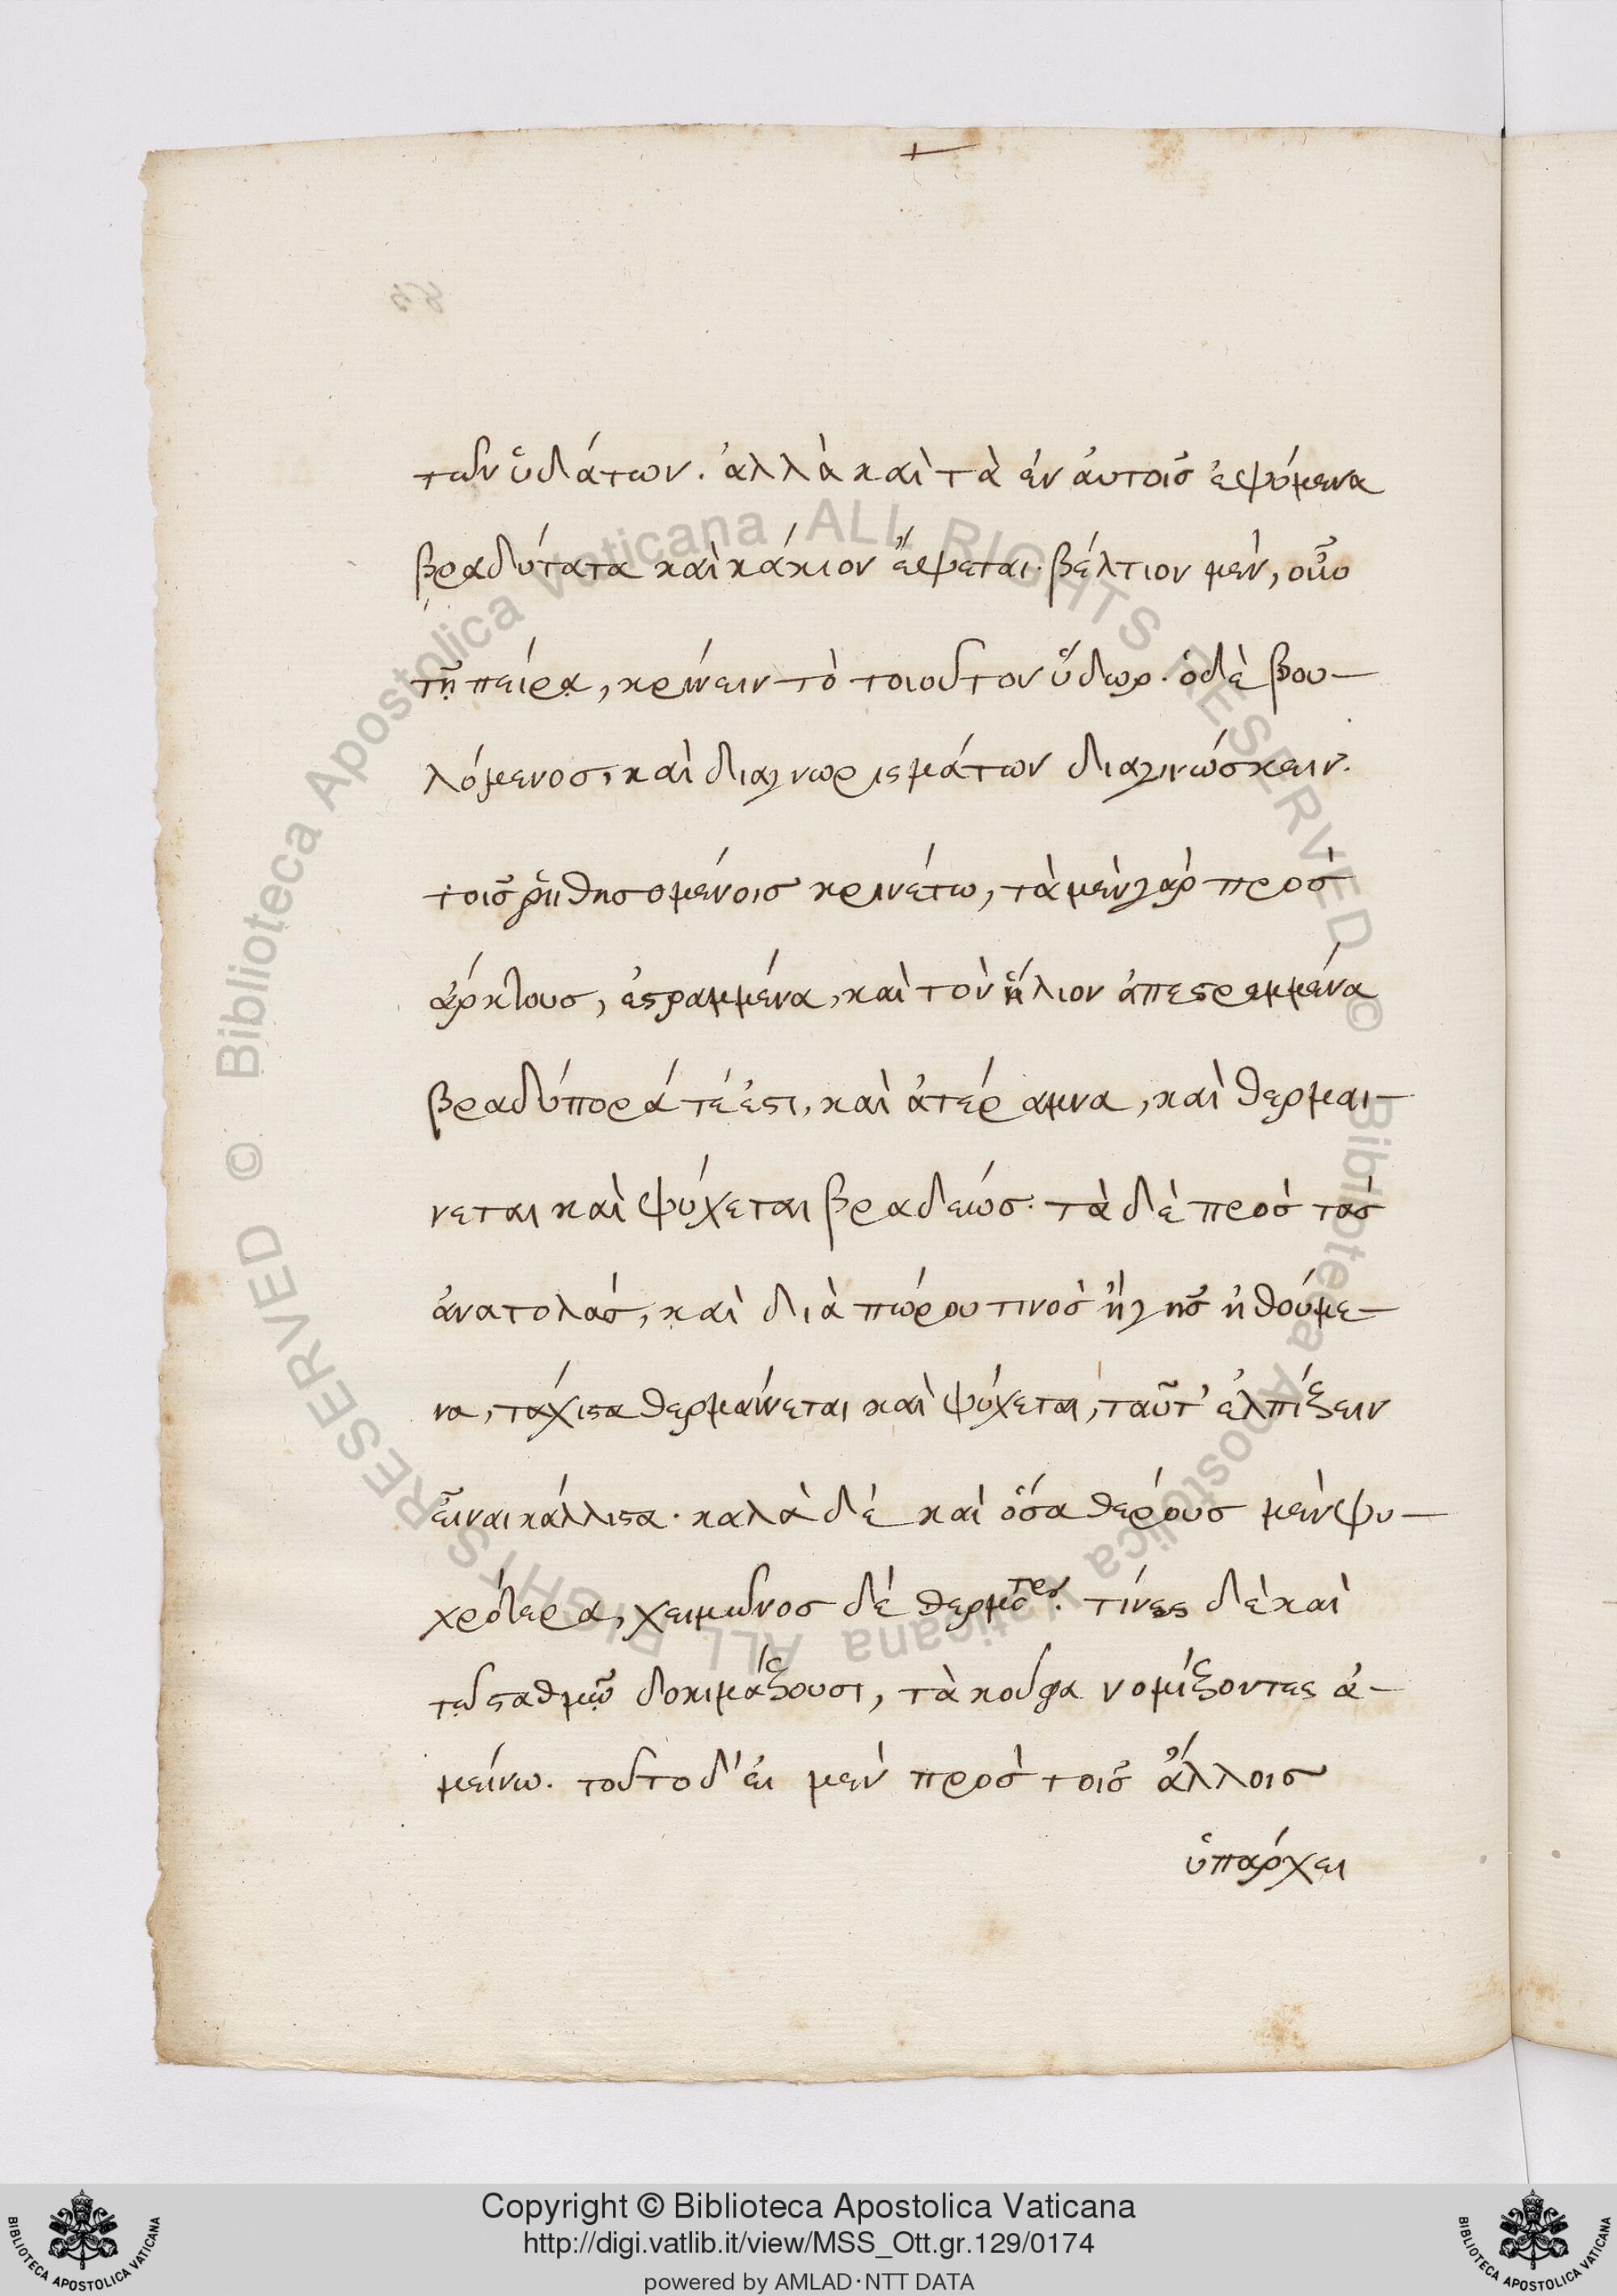 τῶν ὑδάτων. ἀλλὰ καὶ τὰ ἐν ἀυτοῖς ἑψόμενα
βραδύτατα καὶ κάκιον ἕψεται. βέλτιον μὲν,
τῇ πείρᾳ, κρίνειν τὸ τοιοῦτον ὕδωρ. ὁ δὲ βου-
λόμενος, καὶ διαγνωρισμάτων διαγινώσκειν.
τοῖς ῥηθησομένοις κρινέτω, τὰ μὲν γὰρ πρὸς
ἄρκτους, ἐστραμμένα, καὶ τὸν ἥλιον ἀπεστραμμένα
βραδύπορά τέ ἐστι, καὶ ἀτέραμνα, καὶ θερμαι-
νεται καὶ ψύχεται βραδέως. τὰ δὲ πρὸς τὰς
ἀνατολὰς, καὶ διὰ πώρου τινὸς ἢ γῆς ἠθούμε-
να, τάχιστα θερμαίνεται καὶ ψύχεται, ταῦτ' ἐλπίζειν
εἶναι κάλλιστα. καλὰ δὲ καὶ ὅσα θέρους μὲν ψυ-
χρότερα, χειμῶνος δὲ θερμότερα. τίνες δὲ καὶ
τῷ σταθμῷ δοκιμάζουσι, τὰ κοῦφα νομίζοντες ἀ-
μείνω. τοῦτο δ' ἐι μὲν πρὸς τοῖς ἄλλοις
ὑπάρχει
Biblioteca Apostolica Vaticana ALL RIGHTS RESERVED © Biblioteca Apostolica Vaticana ALL RIGHTS RESERVED ©
Copyright © Biblioteca Apostolica Vaticana
http://digi.vatlib.it/view/MSS_Ott.gr.129/0174
powered by AMLAD·NTT DATA
BIBLIOTECA APOSTOLICA VATICANA
BIBLIOTECA APOSTOLICA VATICANA